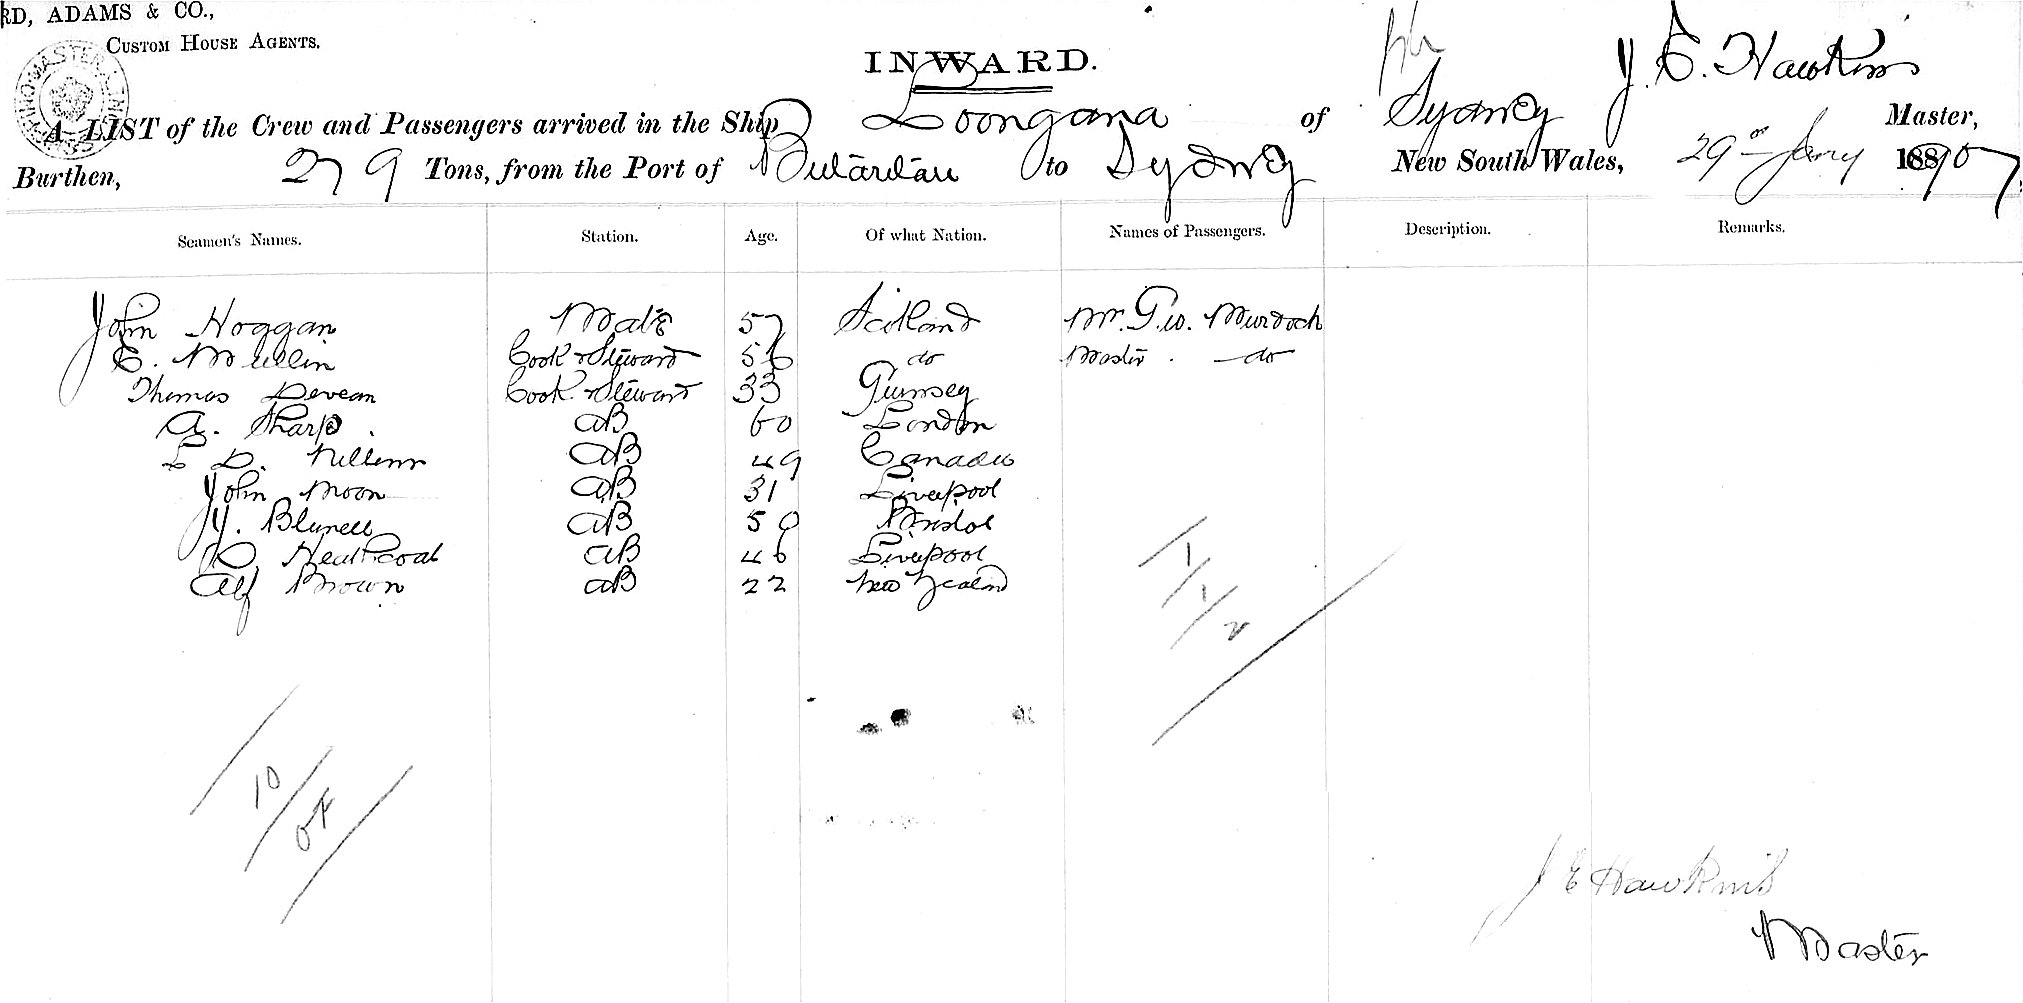 RD, ADAMS & CO.,
CUSTOM HOUSE AGENTS.
INWARD.
A LIST of the Crew and Passengers arrived in the Ship Loongana of Sydney J. E. Hawkins Master,
Burthen, 279 Tons, from the Port of to Sydney New South Wales, 29th Jany
Seamen's Names. Station. Age. Of what Nation. Names of Passengers. Description. Remarks.
John Hoggan Mate 57 Scotland Mr. Geo. Murdoch
E. Mullin Cook & Steward 56 do Master do
Thomas Devean Cook & Steward 33 Gurnsey
A. Sharp AB 60 London
L D. AB 49 Canada
John Moon AB 31 Liverpool
J. AB 50 Bristol
Heathcoat AB 46 Liverpool
Alf Brown AB 22 New Zealand
1/1/2
10
J E Hawkins
Master